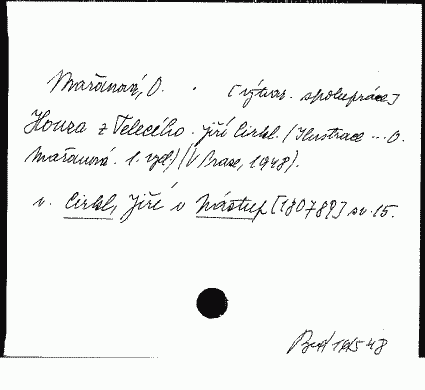 Mařanová, O. . [výtvar. spolupráce]
Honza z Telecího. Jiří Cirkl. (Ilustrace ... O.
Mařanová. 1. vyd.) (V Praze, 1948).
v. Cirkl, Jiří v Nástup [180789] sv. 15.